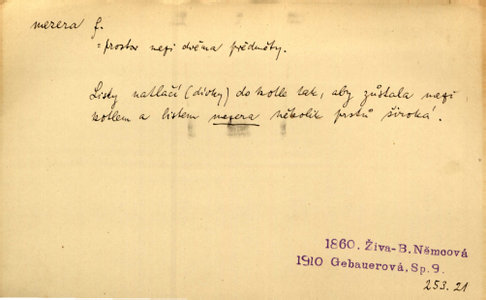 mezera f.
= prostor mezi dvěma předměty.
Lisky natlačí (dívky) do kotle tak, aby zůstala mezi
kotlem a listem mezera několik prstů široká.
1860. Živa-B. Němcová
1910 Gebauerová, Sp. 9.
253.21